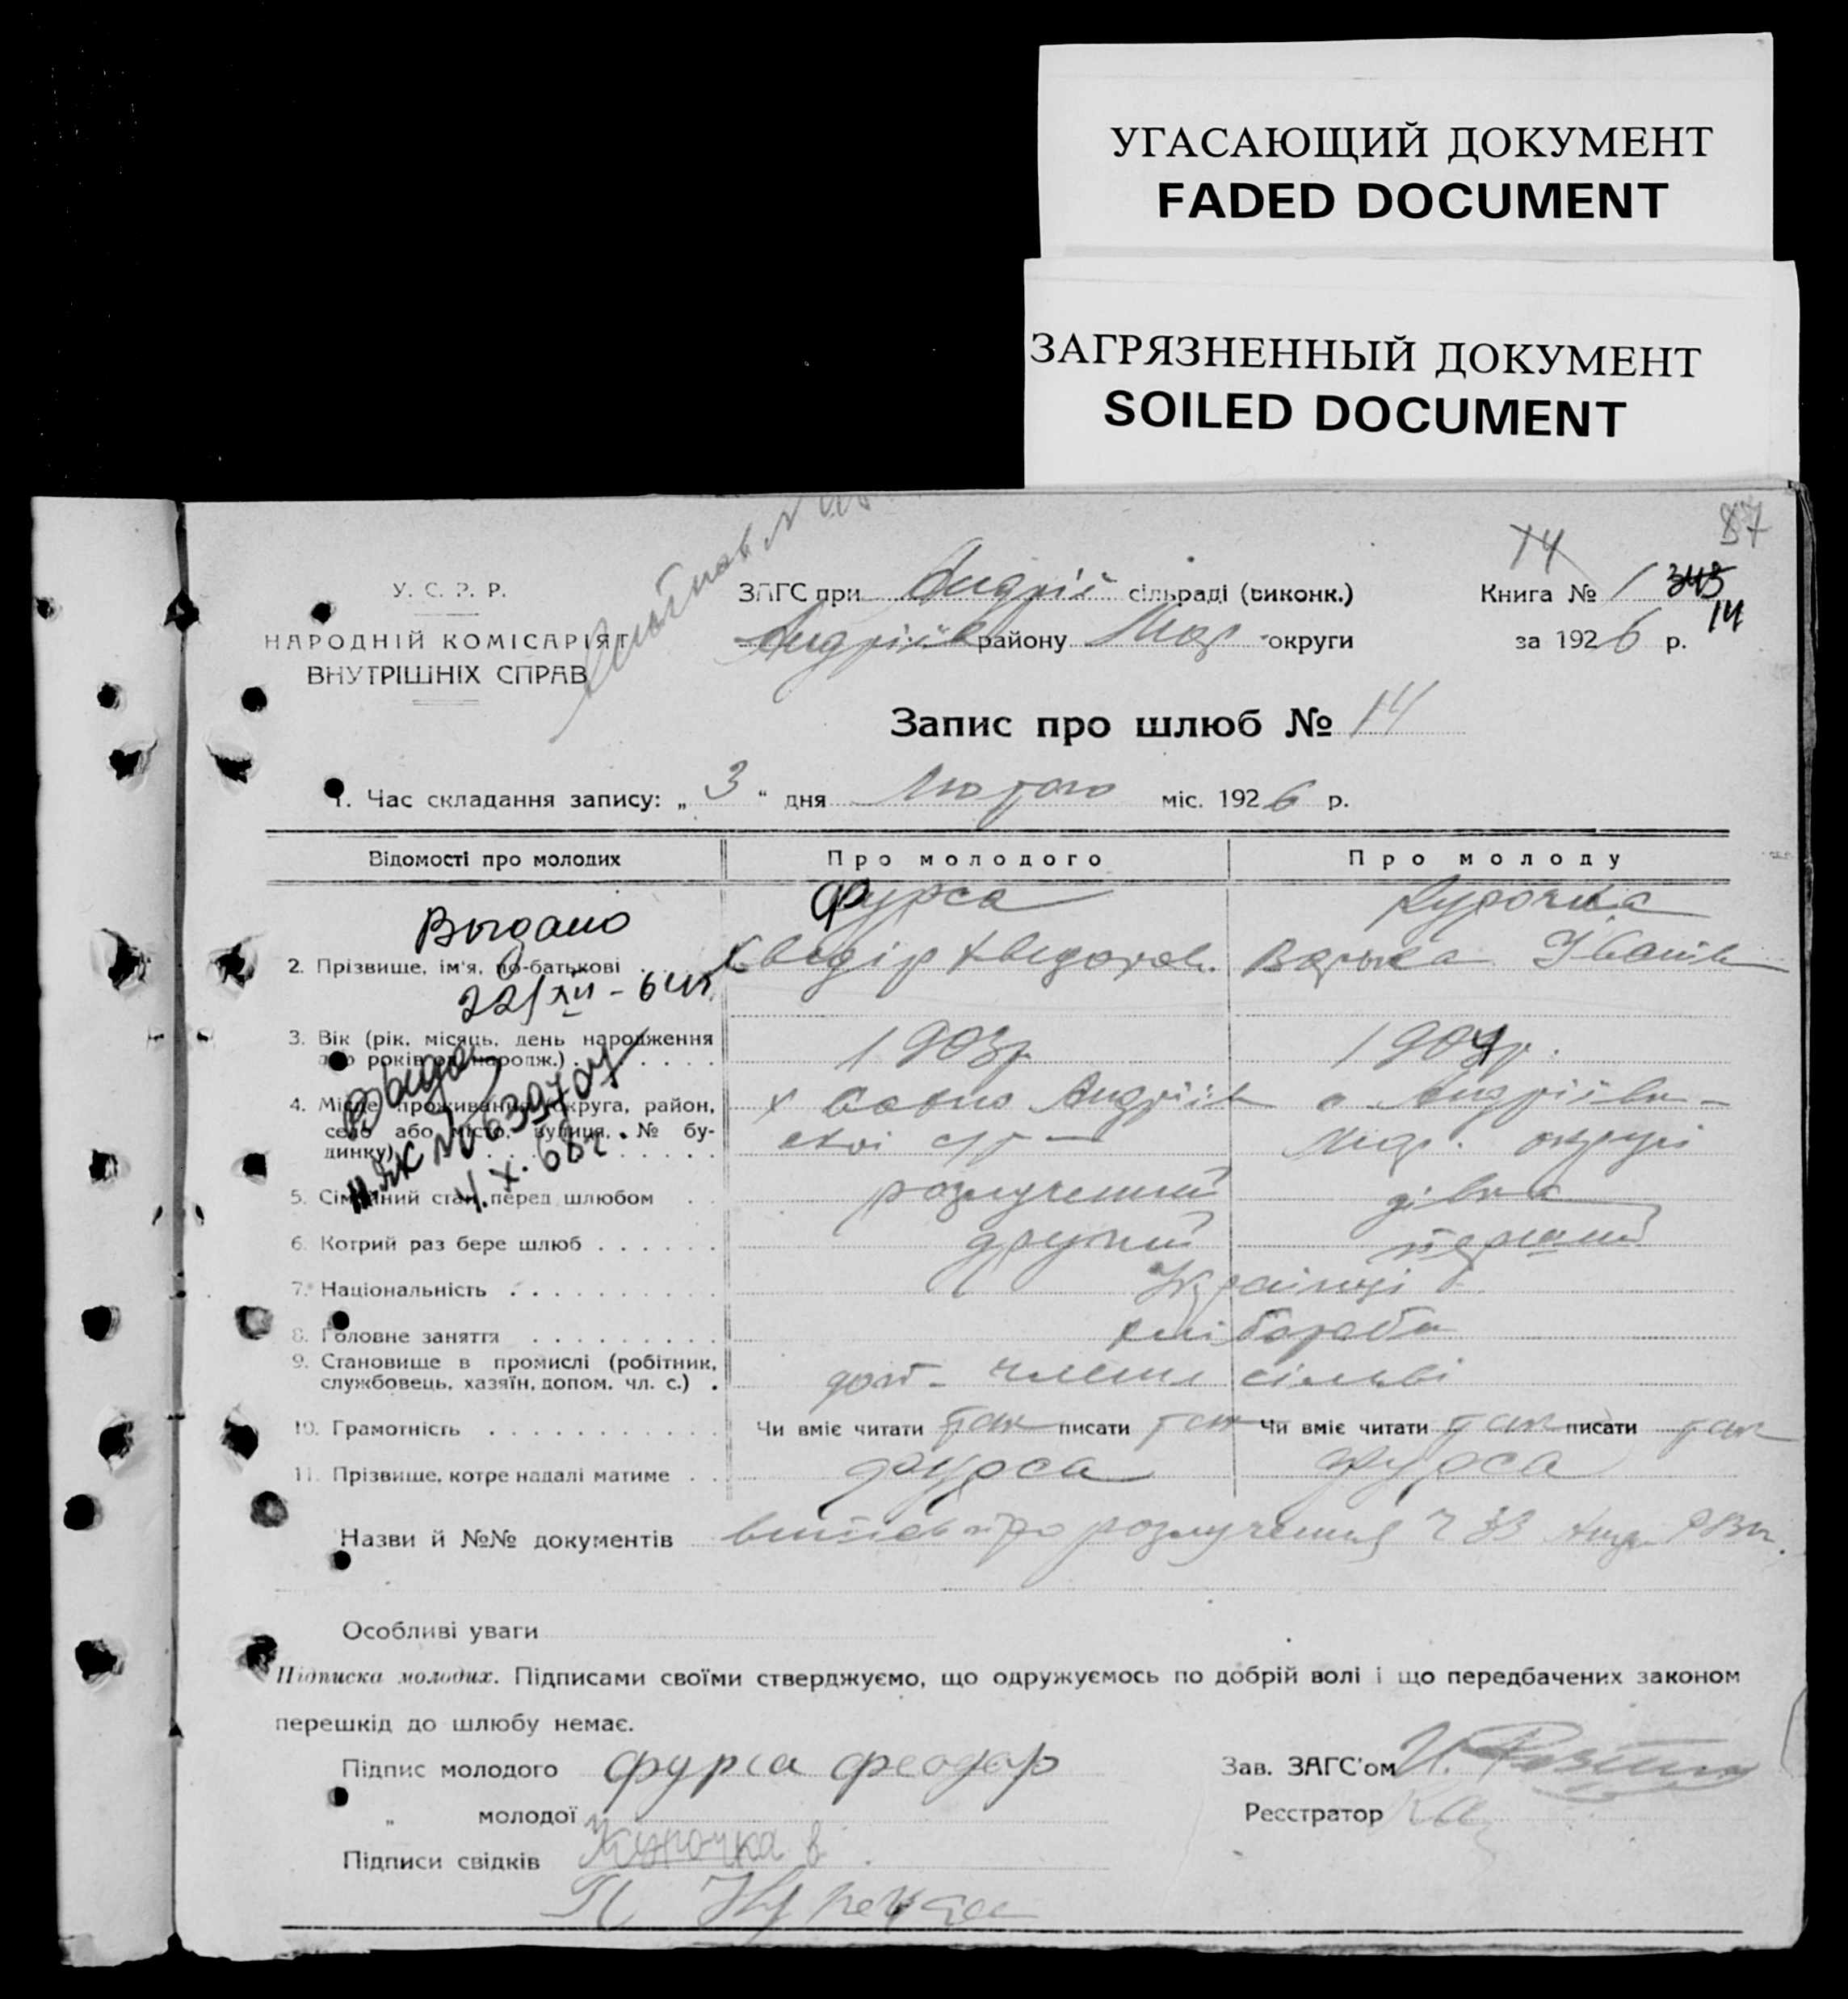 УГАСАЮЩИЙ ДОКУМЕНТ
FADED DOCUMENT
ЗАГРЯЗНЕННЫЙ ДОКУМЕНТ
SOILED DOCUMENT
87
14
У. С. Р. Р.
НАРОДНІЙ КОМІСАРІЯТ
ВНУТРІШНІХ СПРАВ
ЗАГС при Андрії сільраді (виконк.)
Книга № 1 343
14
Андріїв району Мар округи
за 1926 р.
Запис про шлюб № 14
1. Час складання запису: „ 3 “ дня Лютого міс. 1926 р.
Відомості про молодих
Про молодого
Про молоду
Выдано
22/XII - 64г.
2. Прізвище, ім'я, по-батькові
Фурса
Хведір Хведоров.
Курочка
Варька Іванів
3. Вік (рік, місяць, день народження або років од народж.)
1903р.
1904р.
Выдан
4. Місце проживання (округа, район, село або місто, вулиця, № будинку)
Андріїв
с. Андріївка
Мар. округи
4.X.68г
5. Сімейний стан перед шлюбом
розлучений
дівка
6. Котрий раз бере шлюб
другий
перший
7. Національність
Українці
8. Головне заняття
хлібороби
9. Становище в промислі (робітник, службовець, хазяїн, допом. чл. с.)
доп. члени сімьї
10. Грамотність
Чи вміє читати так писати так
Чи вміє читати так писати так
11. Прізвище, котре надалі матиме
Фурса
Фурса
Назви й №№ документів витяг про розлучення Ч 33
Особливі уваги
Підписка молодих. Підписами своїми стверджуємо, що одружуємось по добрій волі і що передбачених законом
перешкід до шлюбу немає.
Підпис молодого Фурса Феодор
Зав. ЗАГС'ом
„ молодої
Реєстратор
Курочка В
Підписи свідків